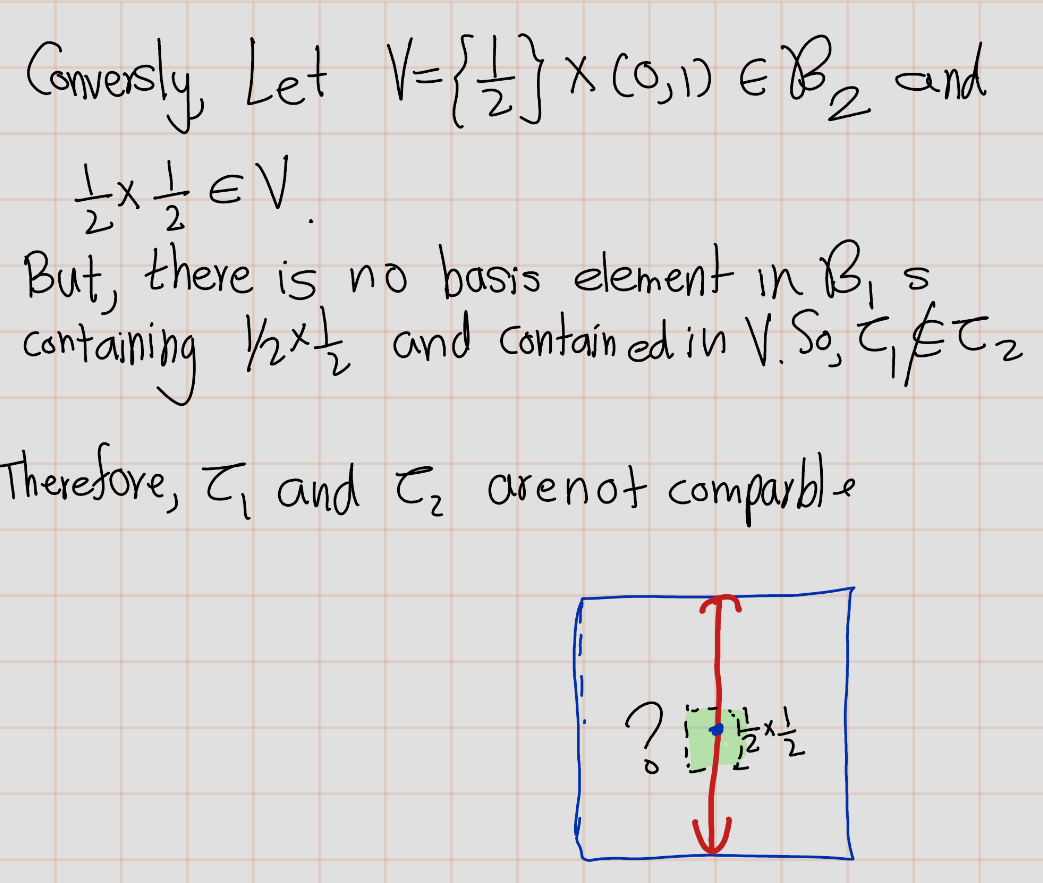 Conversly, Let V={1/2} × (0,1) ∈ ℬ₂ and
1/2 × 1/2 ∈ V.
But, there is no basis element in ℬ₁ s
containing 1/2 × 1/2 and contained in V. So, τ₁ ⊄ τ₂
Therefore, τ₁ and τ₂ are not comparble
? 1/2 × 1/2